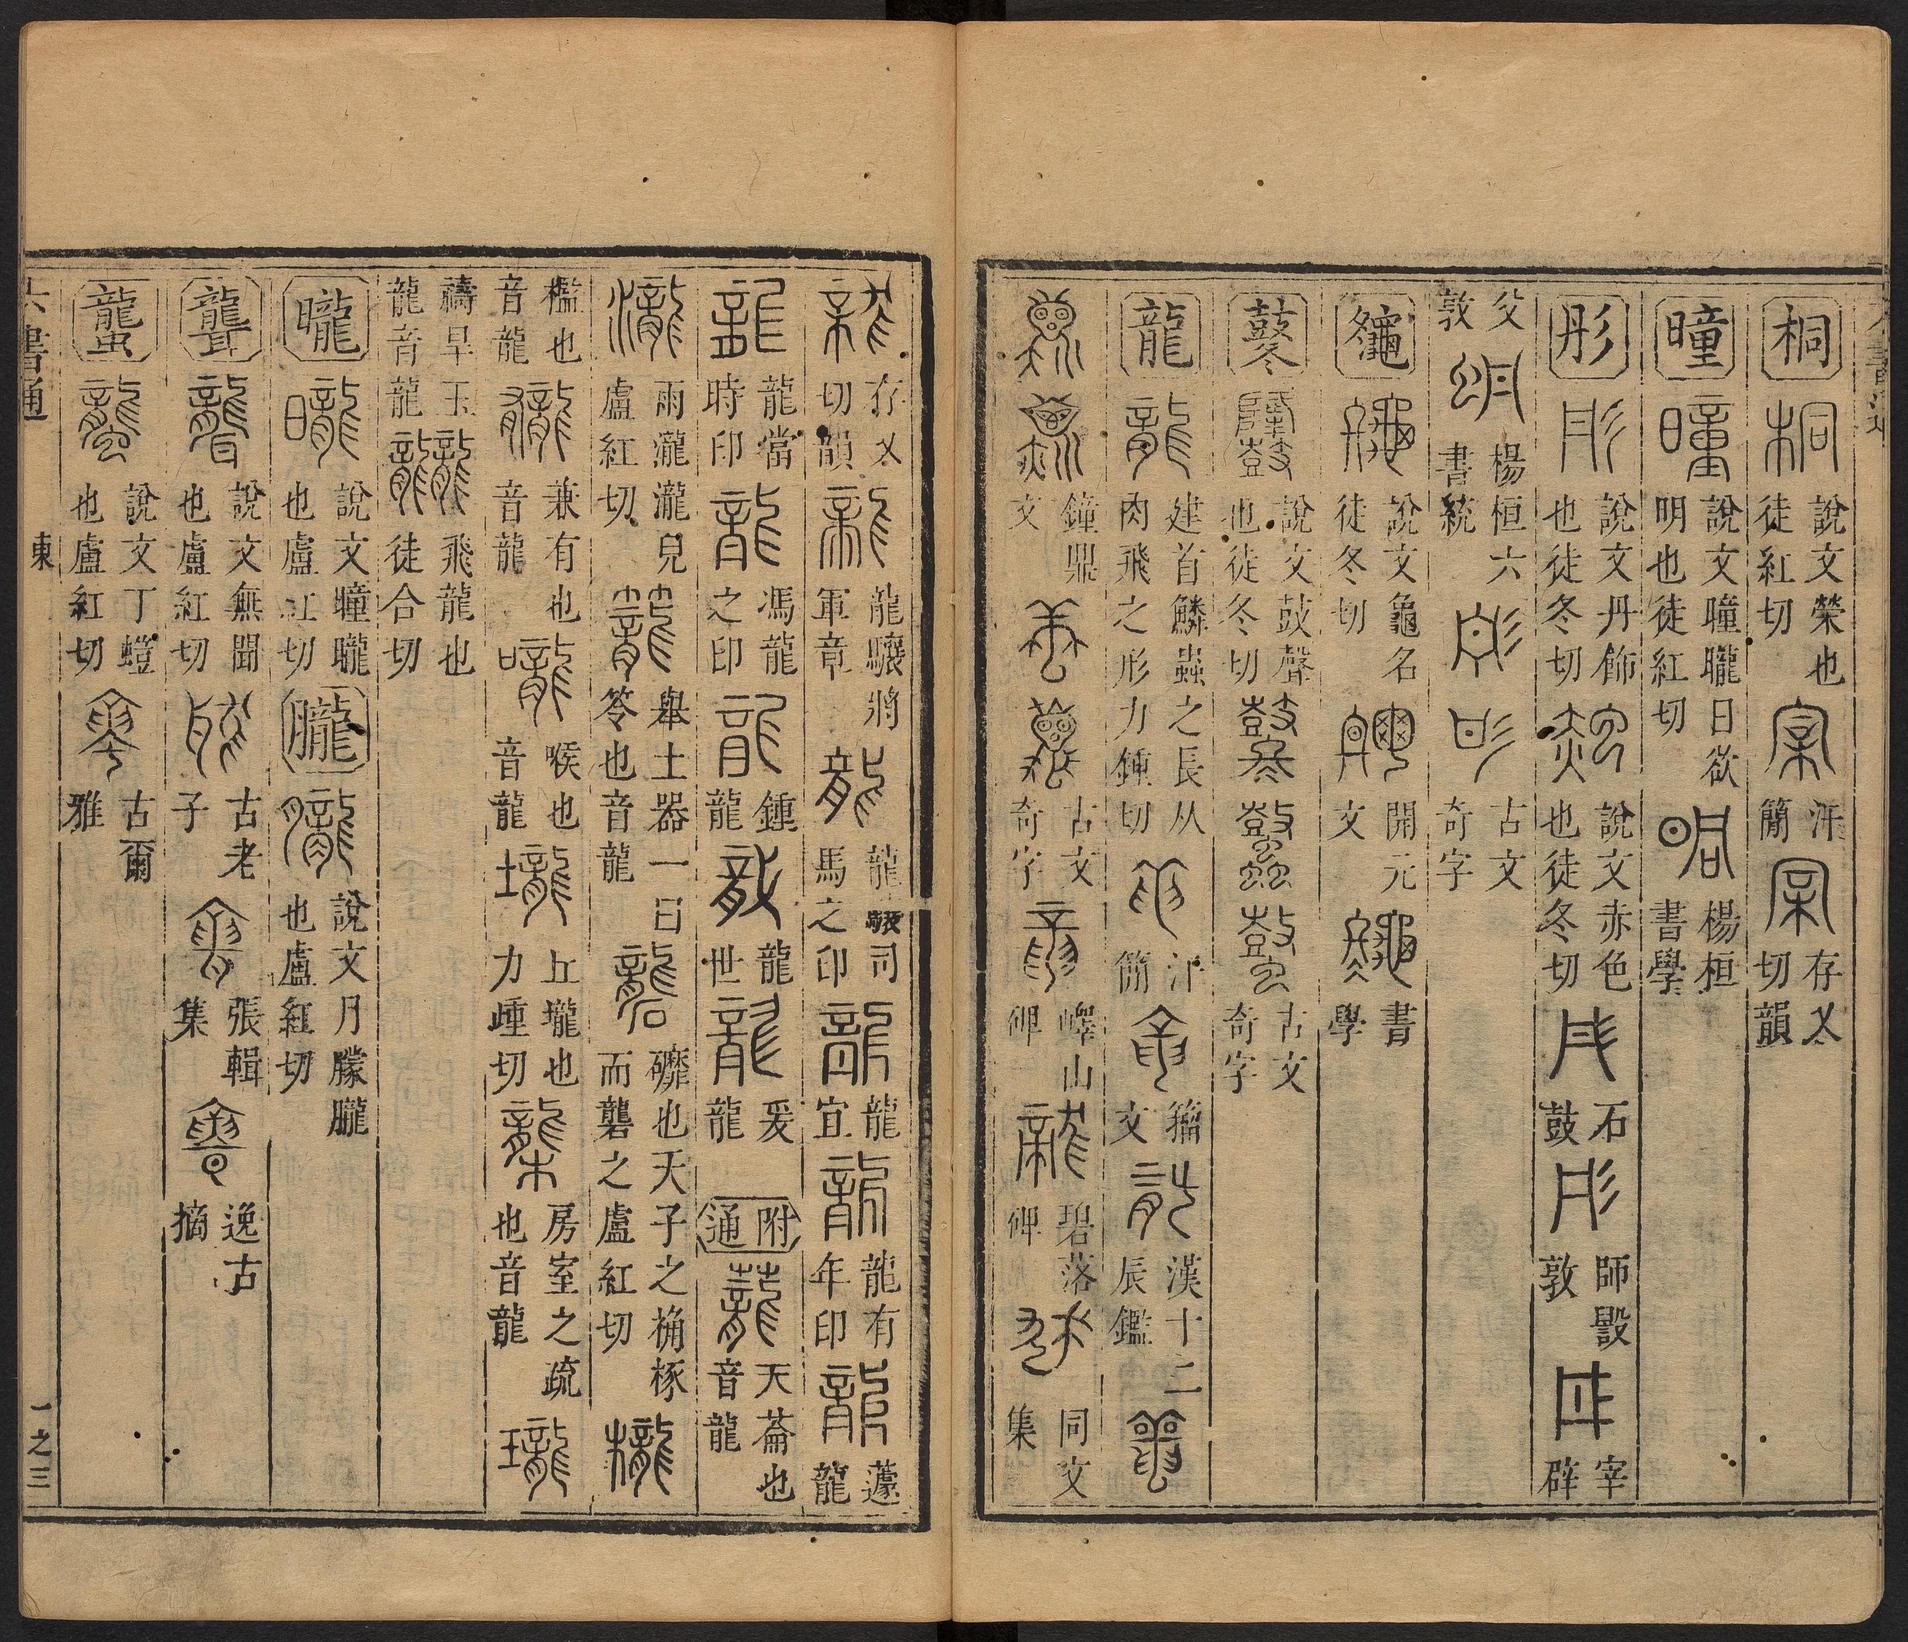 桐 桐 說文榮也徒紅切 汗簡 存乂切韻
曈 曈 說文曈曨日欲明也徒紅切 楊桓書學
彤 彤 說文丹飾也徒冬切 說文赤色也徒冬切 石鼓 師毀敦 宰辟
父敦 楊桓六書統 古文奇字
說文龜名徒冬切 開元文 書學
鼕 說文鼓聲也徒冬切 古文奇字
龍 龍 建首鱗蟲之長从肉飛之形力鍾切 汗簡 籀文 漢十二辰鑑
鐘鼎文 古文奇字 嶧山碑 碧落碑 同文集
存乂切韻 龍驤將軍章 龍驤司馬之印 龍宜 龍有年印 蘧龍
龍當時印 馮龍之印 鍾龍 龍世 爰龍 附通 蘢 天蘥也音龍
瀧 雨瀧瀧皃盧紅切 籠 舉土器一曰笭也音龍 礱 䃺也天子之桷椓而礱之盧紅切 櫳
檻也音龍 兼有也音龍 嚨 喉也音龍 壠 丘壠也力歱切 房室之疏也音龍 瓏
禱旱玉龍音龍 龖 飛龍也徒合切
曨 曨 說文曈曨也盧紅切 朧 朧 說文月朦朧也盧紅切
聾 聾 說文無聞也盧紅切 古老子 張輯集 逸古摘
蠪 蠪 說文丁螘也盧紅切 古爾雅
六書通 東 一之三